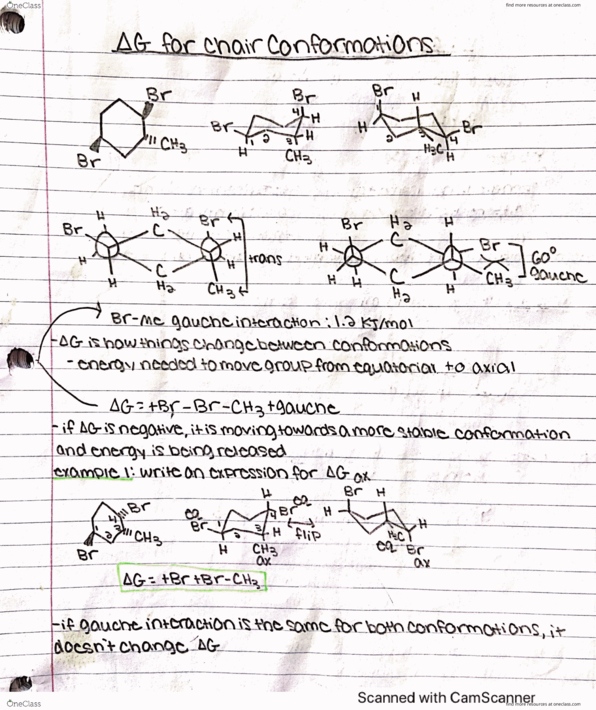 OneClass
find more resources at oneclass.com
ΔG for chair conformations
Br
CH3
Br
Br
4
H
Br
1
2
3
H
H
CH3
Br
H
H
Br
4
2
3
H3C
H
H
H2
Br
Br
C
H
H
H
trans
C
H
H2
CH3
Br
H2
H
H
C
Br
60°
gauche
H
C
CH3
H
H2
H
Br-Me gauche interaction: 1.2 KJ/mol
-ΔG is how things change between conformations
- energy needed to move group from equatorial to axial
ΔG=+Br-Br-CH3+gauche
-if ΔG is negative, it is moving towards a more stable conformation
and energy is being released
example 1: write an expression for ΔG
Br
4
3
2
1
CH3
Br
H
eq
4
Br
eq
Br
1
2
3
H
H
CH3
ax
flip
ax
Br
H
H
H
H3C
eq
Br
ax
ΔG=+Br+Br-CH3
-if gauche interaction is the same for both conformations, it
doesn't change ΔG
Scanned with CamScanner
OneClass
find more resources at oneclass.com